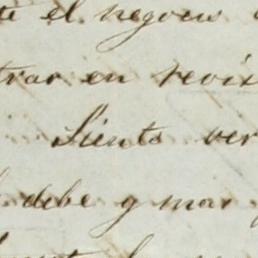 te el negocio
trar en revis
Siento ver
debe y mas